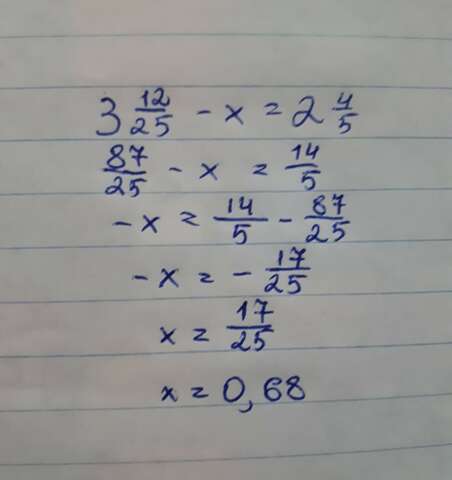 3 12/25 - x = 2 4/5
87/25 - x = 14/5
-x = 14/5 - 87/25
-x = - 17/25
x = 17/25
x = 0,68